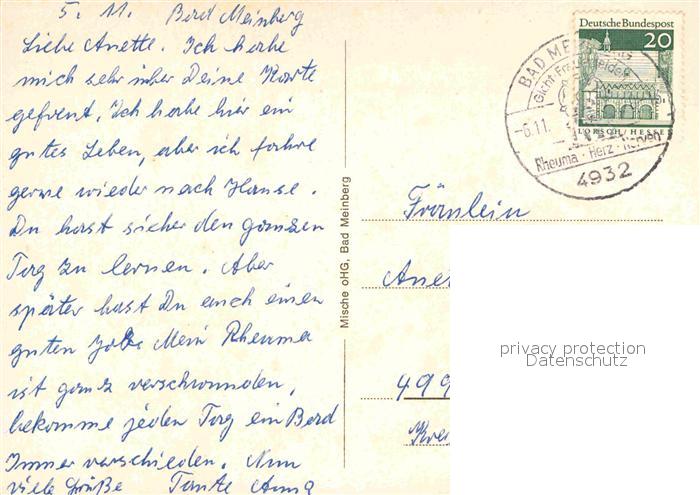 5. 11. Bad Meinberg
Liebe Anette. Ich habe
mich sehr über Deine Karte
gefreut. Ich habe hier ein
gutes Leben, aber ich fahre
gerne wieder nach Hause.
Du hast sicher den ganzen
Tag zu lernen. Aber
später hast Du auch einen
guten Job. Mein Rheuma
ist ganz verschwunden,
bekomme jeden Tag ein Bad
Immer verschieden. Nun
viele Grüße Tante Anna
Mische oHG, Bad Meinberg
Deutsche Bundespost
20
LORSCH / HESSEN
BAD ME
-6.11.
Rheuma · Herz · Nerven
4932
Fräulein
Ane
499
privacy protection
Datenschutz